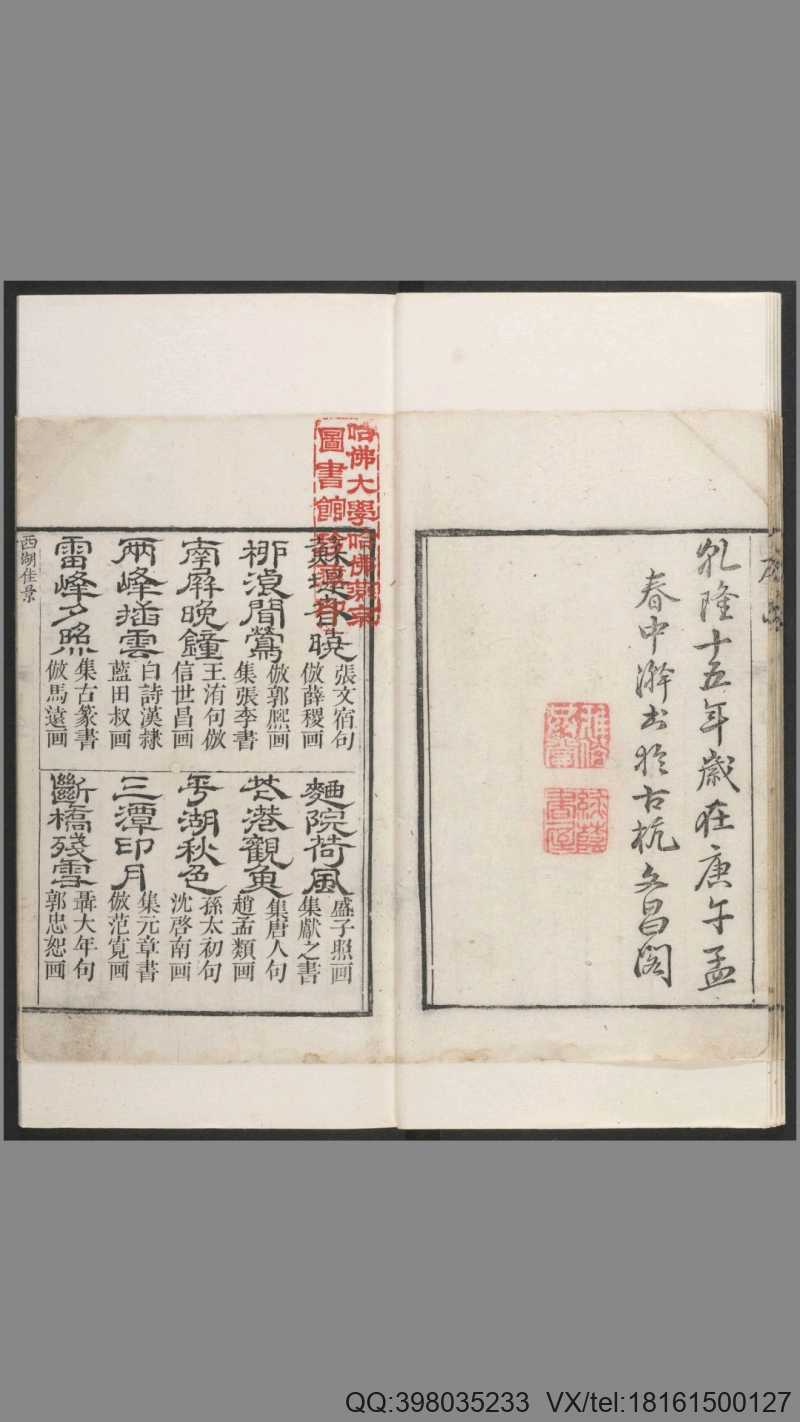 乹隆十五年歲在庚午孟
春中澣書於古杭文昌閣
哈佛大學哈佛燕京
圖書館珍藏印
蘇堤春曉
張文宿句
倣薛稷画
柳浪聞鶯
倣郭熈画
集張李書
南屏晚鐘
王洧句倣
信世昌画
兩峰插雲
白詩漢隸
藍田叔画
雷峰夕照
集古篆書
倣馬遠画
麯院荷風
盛子照画
集獻之書
花港觀魚
集唐人句
趙孟頫画
平湖秋色
孫太初句
沈啓南画
三潭印月
集元章書
倣范寬画
斷橋殘雪
聶大年句
郭忠恕画
西湖佳景
QQ:398035233 VX/tel:18161500127